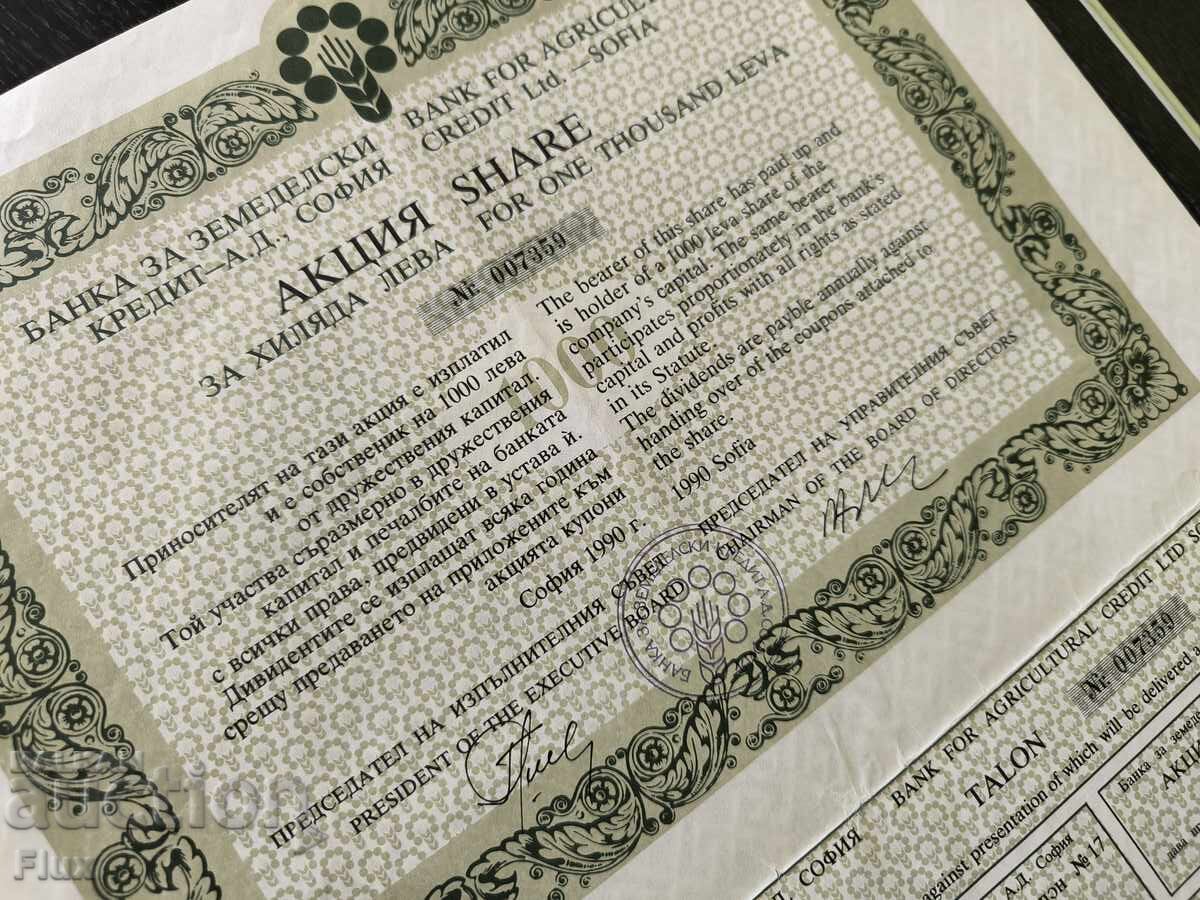 БАНКА ЗА ЗЕМЕДЕЛСКИ
КРЕДИТ–А.Д., СОФИЯ
BANK FOR AGRICULT
CREDIT Ltd. –SOFIA
АКЦИЯ SHARE
ЗА ХИЛЯДА ЛЕВА FOR ONE THOUSAND LEVA
№ 007359
1000
Приносителят на тази акция е изплатил
и е собственик на 1000 лева
от дружествения капитал.
Той участва съразмерно в дружествения
капитал и печалбите на банката
с всички права, предвидени в устава ѝ.
Дивидентите се изплащат всяка година
срещу предаването на приложените към
акцията купони
София 1990 г.
The bearer of this share has paid up and
is holder of a 1000 leva share of the
company's capital. The same bearer
participates proportionately in the bank's
capital and profits with all rights as stated
in its Statute.
The dividends are payble annually against
handing over of the coupons attached to
the share.
1990 Sofia
ПРЕДСЕДАТЕЛ НА ИЗПЪЛНИТЕЛНИЯ СЪВЕТ
PRESIDENT OF THE EXECUTIVE BOARD
ПРЕДСЕДАТЕЛ НА УПРАВИТЕЛНИЯ СЪВЕТ
CHAIRMAN OF THE BOARD OF DIRECTORS
БАНКА ЗА ЗЕМЕДЕЛСКИ КРЕДИТ А.Д. СО
СОФИЯ BANK FOR AGRICULTURAL CREDIT LTD S
TALON
№ 007359
against presentation of which will be delivered a
А.Д. София
№ 17
Банка за земе
АКЦ
дава
auction
Flux